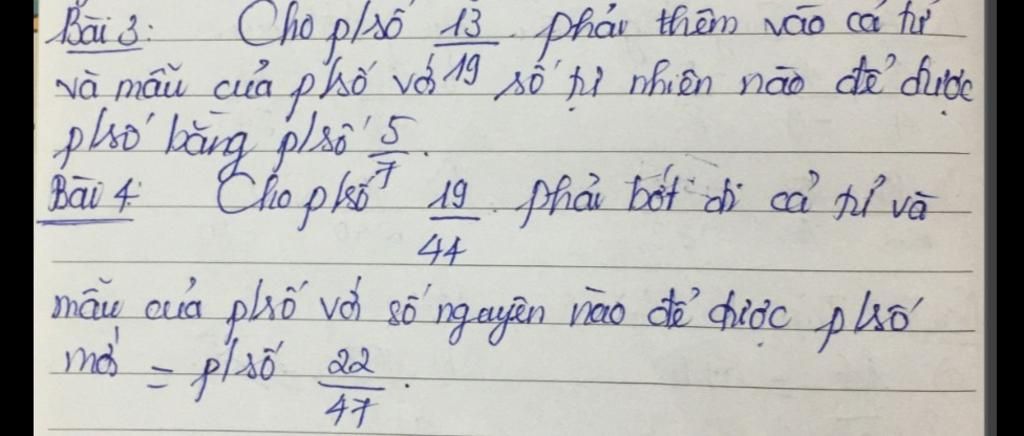 Bài 3: Cho p/số 13/19. phải thêm vào cả tử
và mẫu của p/số với số tự nhiên nào để được
p/số bằng p/số 5/7.
Bài 4: Cho p/số 19/44. phải bớt đi cả tử và
mẫu của p/số với số nguyên nào để được p/số
mới = p/số 22/47.